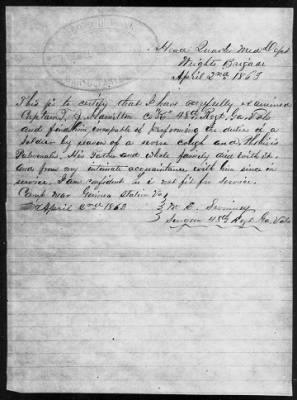 Head Quarters Med Dept
Wrights Brigade
April 2nd 1863
This is to certify that I have carefully examined
Captain T. J. Hamilton Co K 48th Regt Ga Vols
and find him incapable of performing the duties of a
soldier by reason of a severe cough and Phthisis
Pulmonalis. His Father and whole family died with it.
and from my intimate acquaintance with him since in
service. I am confident is not fit for service.
Camp near Guinea Station Va
April 2nd 1863
Surgeon 48th Regt Ga Vols